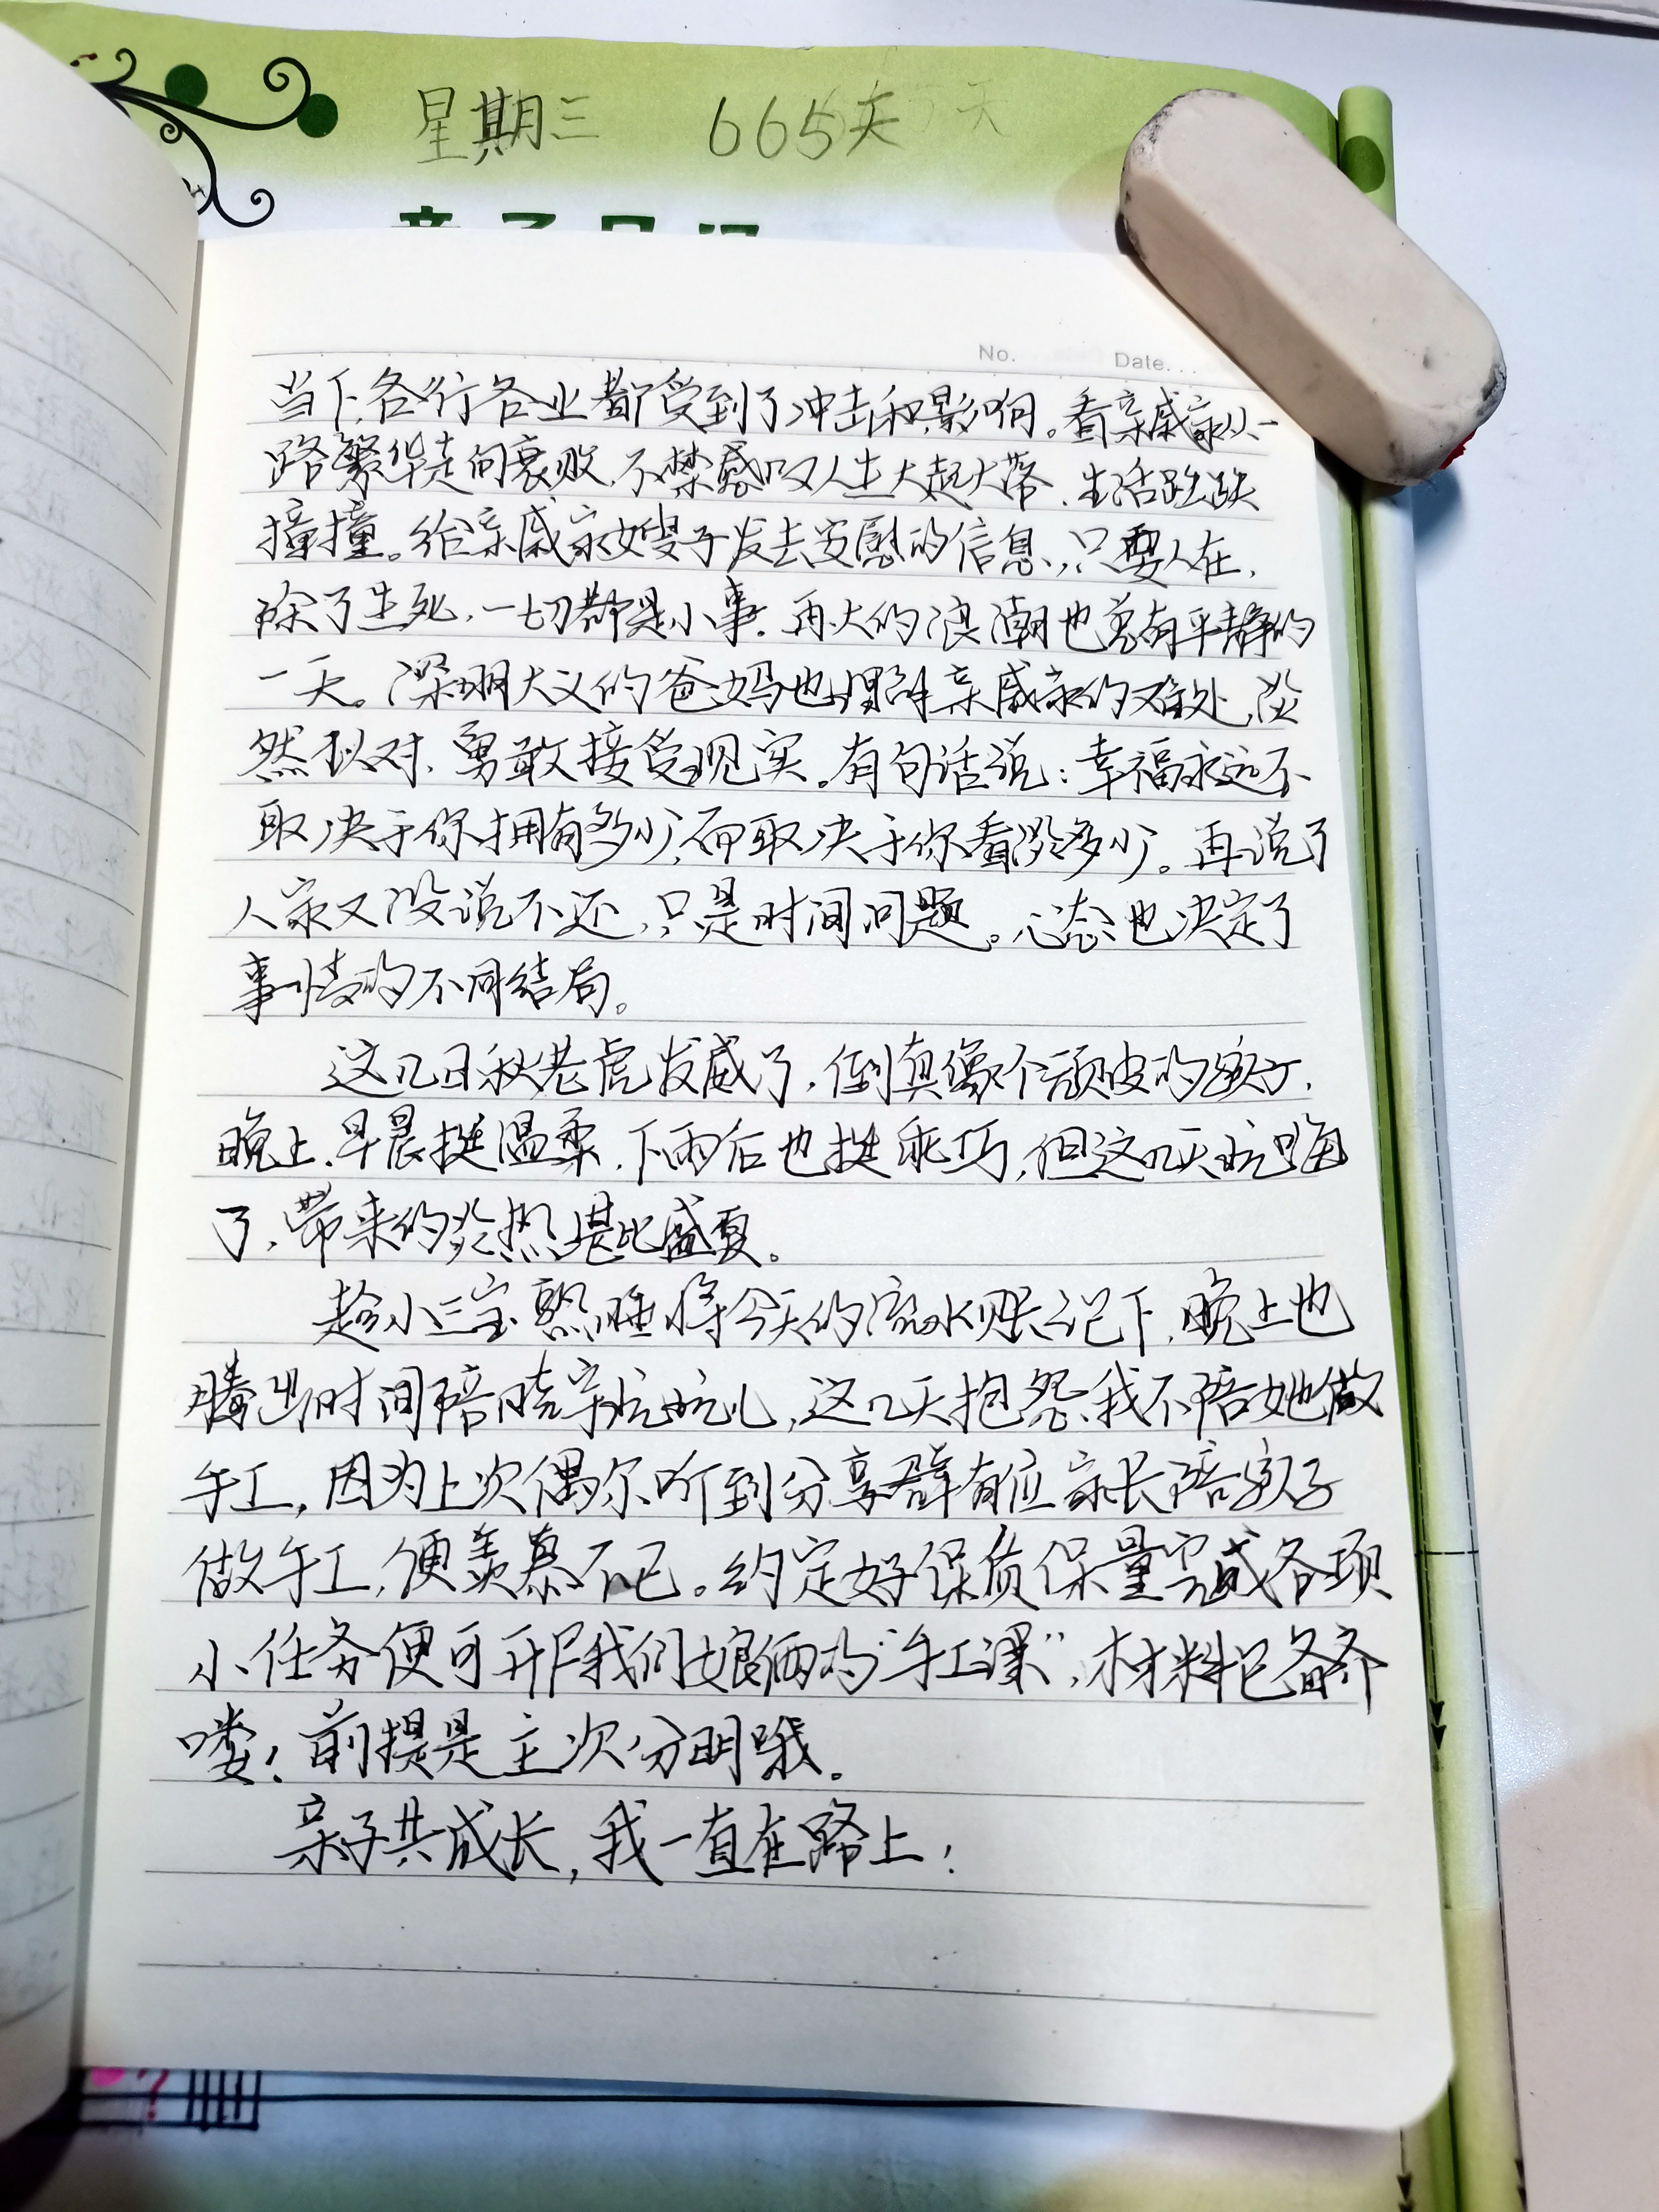 星期三 665天
亲子日记
No. Date.
当下,各行各业都受到了冲击和影响。看亲戚家从一
路繁华走向衰败,不禁感叹人生大起大落,生活跌跌
撞撞。给亲戚家嫂子发去安慰的信息,只要人在,
除了生死,一切都是小事。再大的浪潮也总有平静的
一天。深明大义的爸妈也理解亲戚家的难处,坦
然以对,勇敢接受现实。有句话说:幸福永远不
取决于你拥有多少,而取决于你看淡多少。再说了
人家又没说不还,只是时间问题。心态也决定了
事情的不同结局。
这几日秋老虎发威了,倒真像个顽皮的孩子,
晚上、早晨挺温柔,下雨后也挺乖巧,但这几天玩嗨
了,带来的炎热堪比盛夏。
趁小三宝熟睡将今天的流水账记下,晚上也
腾出时间陪晓宇玩玩儿,这几天抱怨我不陪她做
手工,因为上次偶尔听到分享群有位家长陪孩子
做手工,便羡慕不已。约定好保质保量完成各项
小任务便可开启我们娘俩的“手工课”,材料已备齐
喽!前提是主次分明哦。
亲子共成长,我一直在路上!